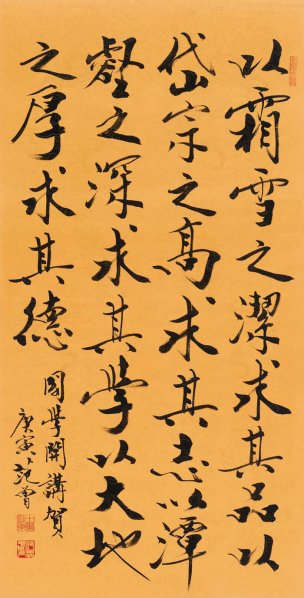 以霜雪之潔求其品以
岱宗之高求其志以潭
壑之深求其學以大地
之厚求其德
國學開講賀
庚寅 范曾